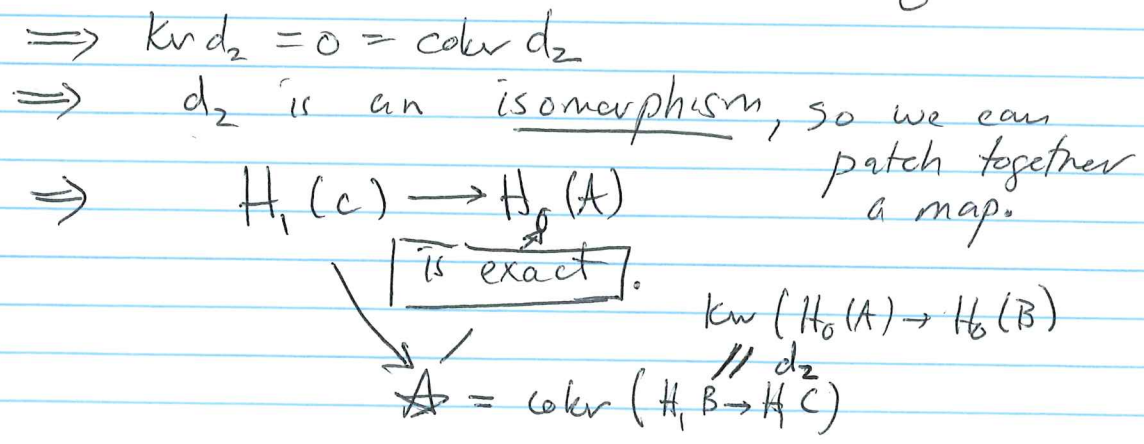 ⟹ Kr d₂ = 0 = cokr d₂
⟹ d₂ is an isomorphism, so we can
patch together
⟹ H₁(C) ⟶ H₀(A)
a map.
is exact.
kr (H₀(A) → H₀(B)
// d₂
☆ = cokr (H₁ B → H C)